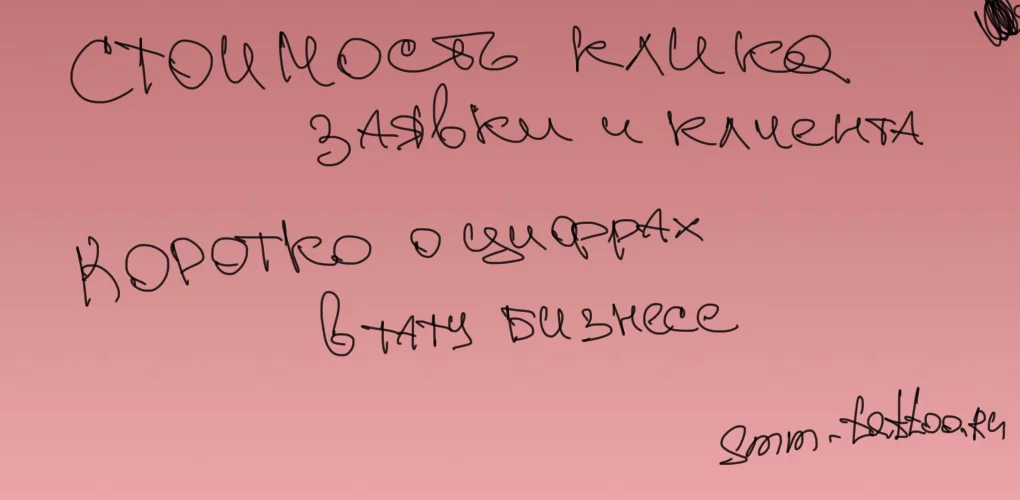 Стоимость клика
заявки и клиента
Коротко о цифрах
в тату бизнесе
smm-tattoo.ru